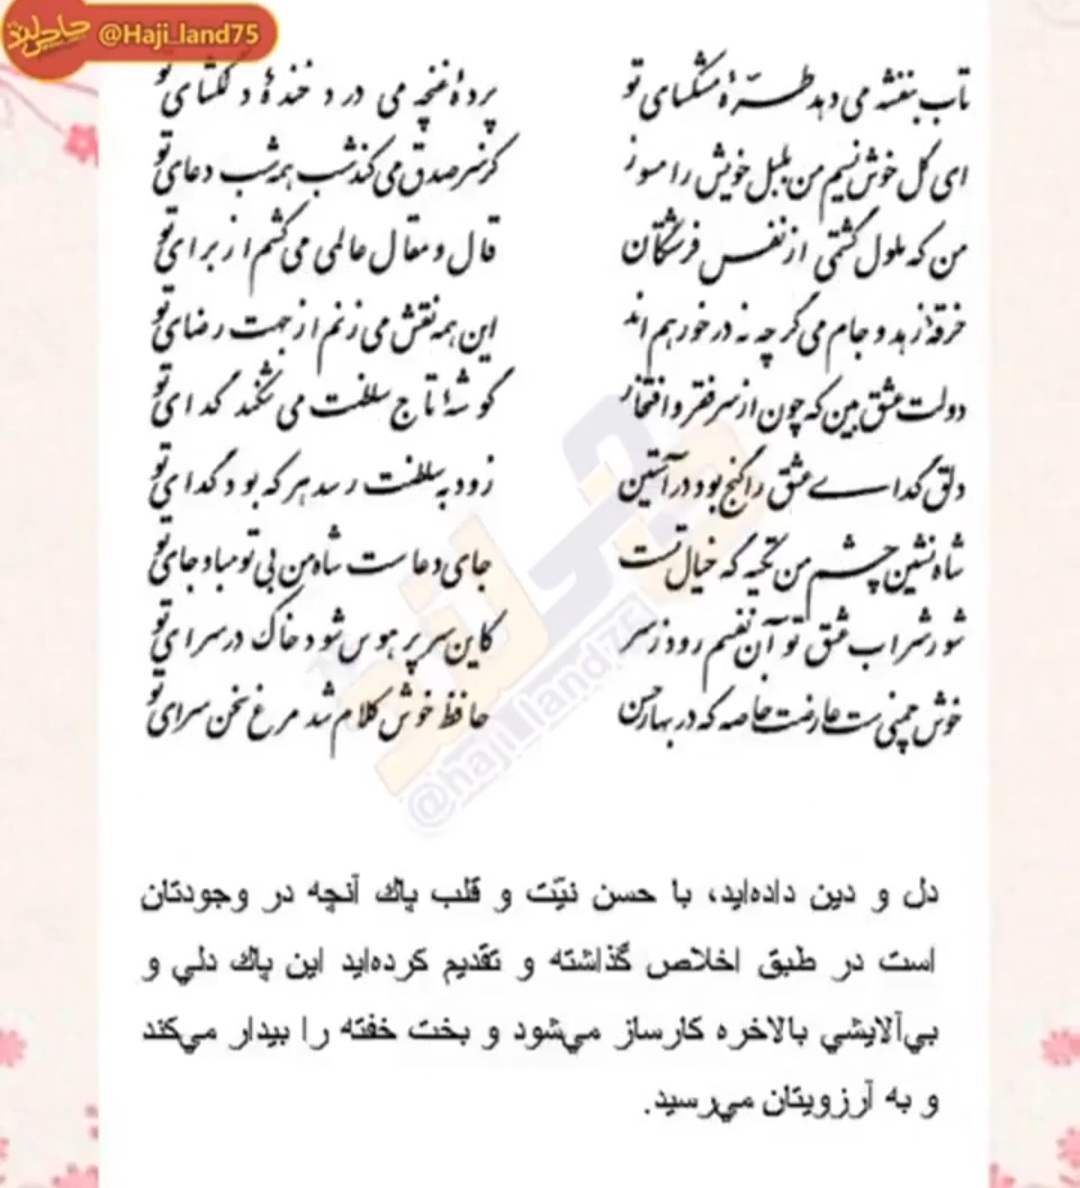 حاجی‌لند @Haji_land75
تاب بنفشه می دهد طرهٔ مشکسای تو پردهٔ غنچه می درد خندهٔ دلگشای تو
ای گل خوش نسیم من بلبل خویش را مسوز کز سر صدق می کند شب همه شب دعای تو
من که ملول گشتمی از نفس فرشتگان قال و مقال عالمی می کشم از برای تو
خرقهٔ زهد و جام می گر چه نه در خور هم اند این همه نقش می زنم از جهت رضای تو
دولت عشق بین که چون از سر فقر و افتخار گوشهٔ تاج سلطنت می شکند گدای تو
دلق گدای عشق را گنج بود در آستین زود به سلطنت رسد هر که بود گدای تو
شاه نشین چشم من تکیه گه خیال تست جای دعاست شاه من بی تو مباد جای تو
شور شراب عشق تو آن نفسم رود ز سر کاین سر پر هوس شود خاک در سرای تو
خوش چمنی ست عارضت خاصه که در بهار حسن حافظ خوش کلام شد مرغ سخن سرای تو
@haji_land75
دل و دین داده‌اید، با حسن نیّت و قلب پاك آنچه در وجودتان
است در طبق اخلاص گذاشته و تقدیم کرده‌اید این پاك دلي و
بي‌آلایشي بالاخره کارساز مي‌شود و بخت خفته را بیدار مي‌کند
و به آرزویتان مي‌رسید.